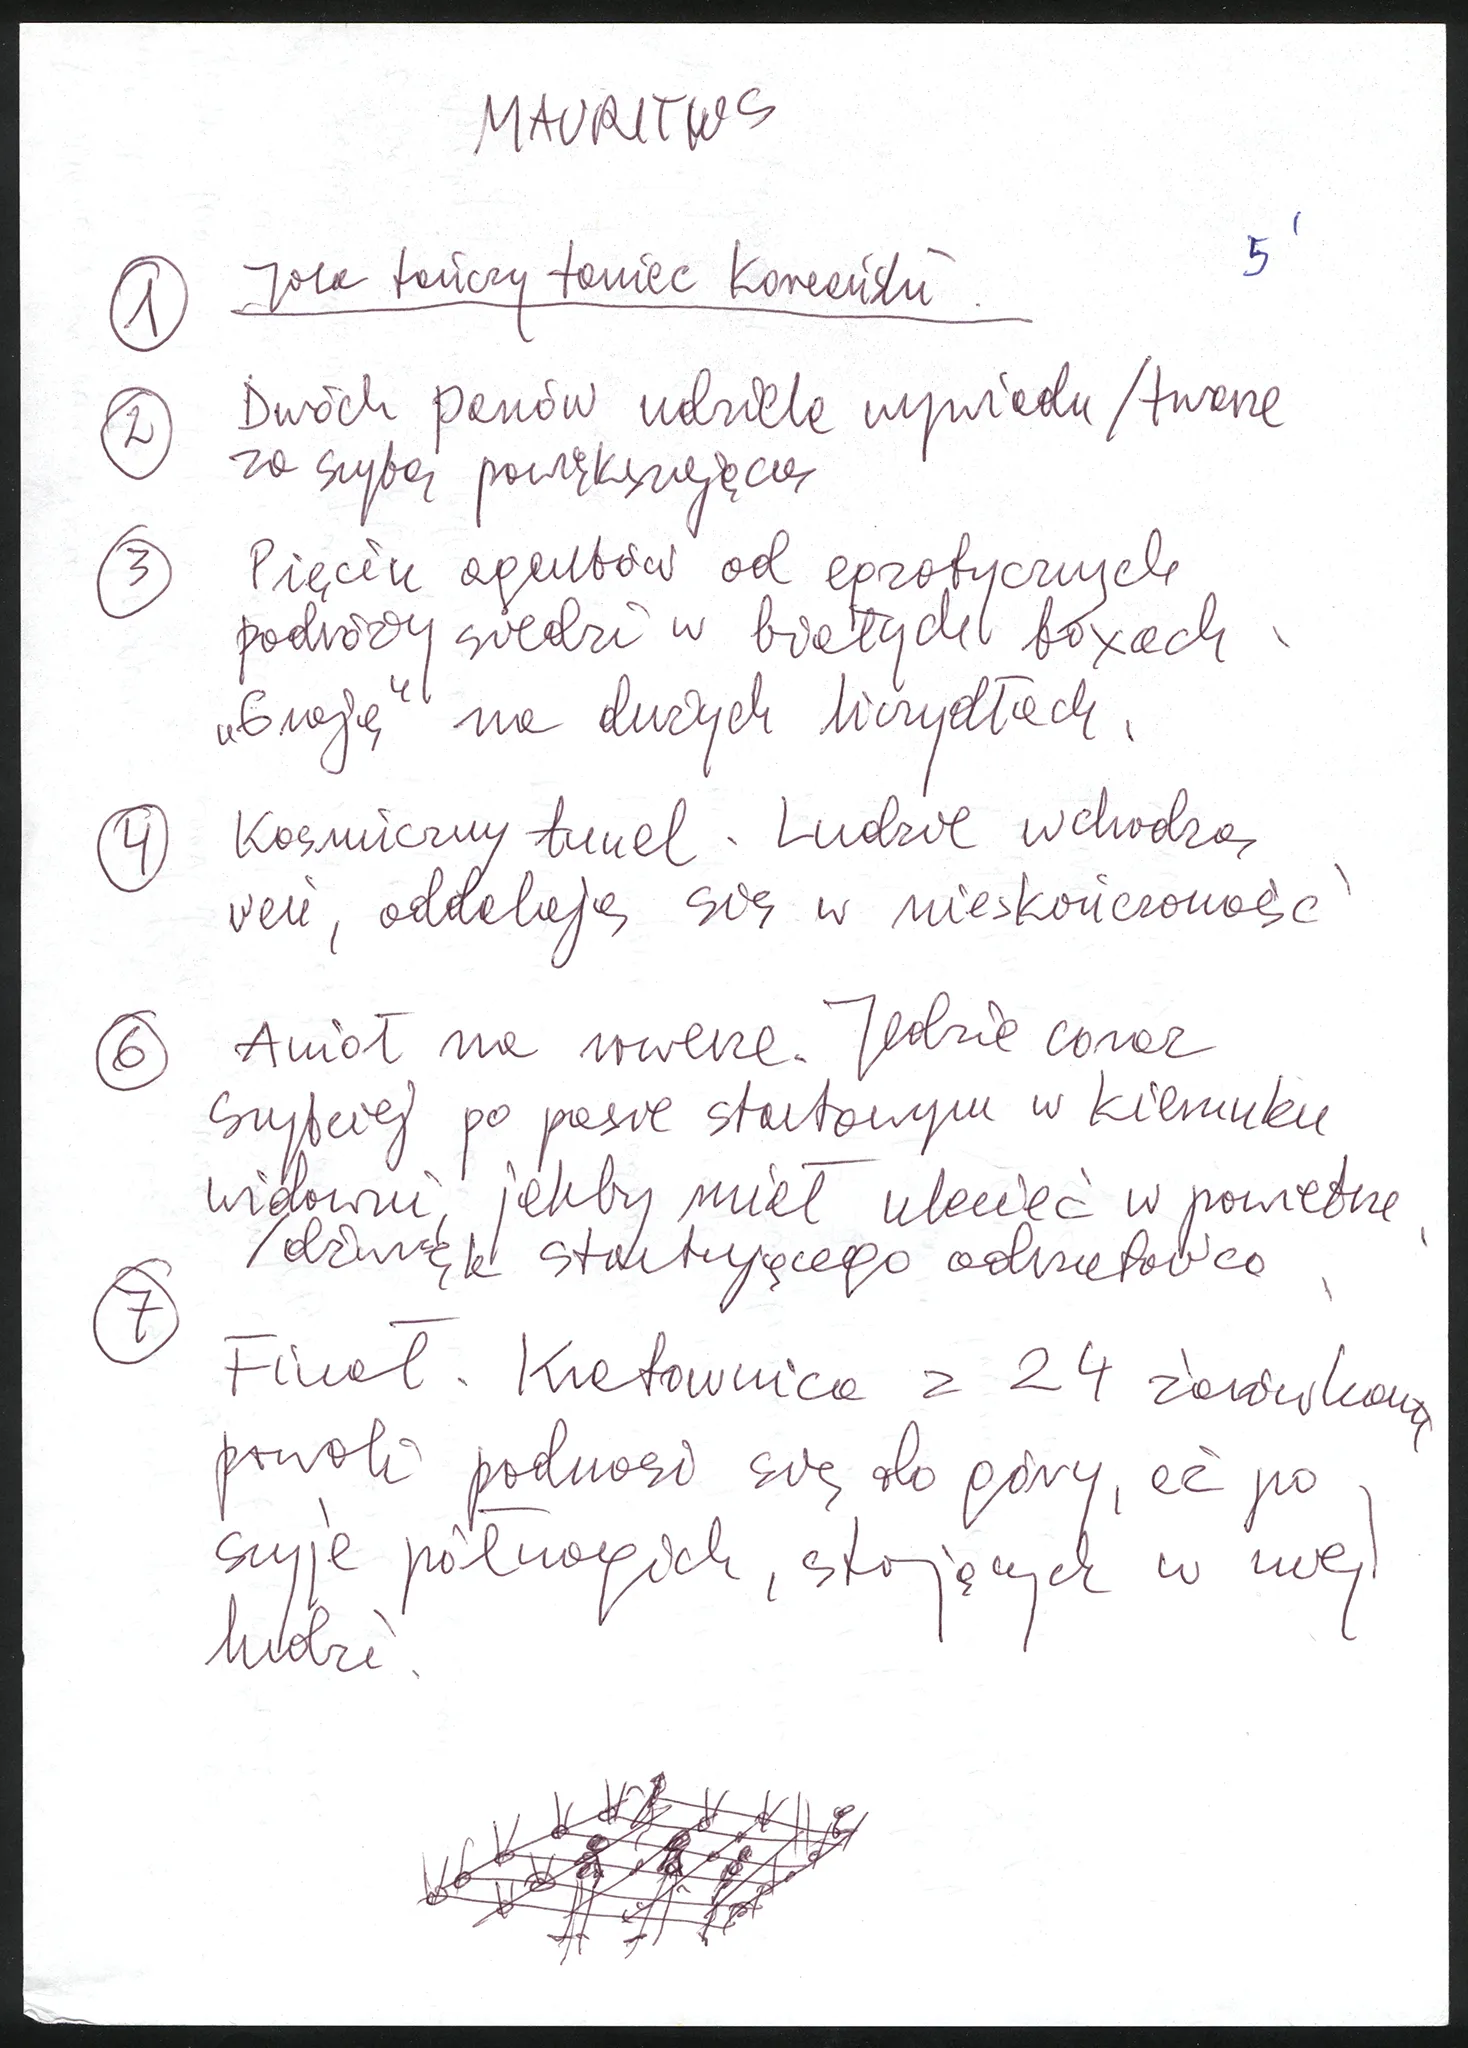 MAURITIUS
5'
1 Jola tańczy taniec Koreański.
2 Dwóch panów udziela wywiadu / twarze
za szybą powiększającą
3 Pięciu agentów od egzotycznych
podróży siedzi w białych boxach.
„Grają" na dużych liczydłach.
4 Kosmiczny tunel. Ludzie wchodzą
weń, oddalają się w nieskończoność
6 Anioł na rowerze. Jedzie coraz
szybciej po pasie startowym w kierunku
widowni, jakby miał ulecieć w powietrze.
/dźwięk startującego odrzutowca.
7
Finał. Kratownica z 24 żarówkami
powoli podnosi się do góry, aż po
szyje półnagich, stojących w niej
ludzi.